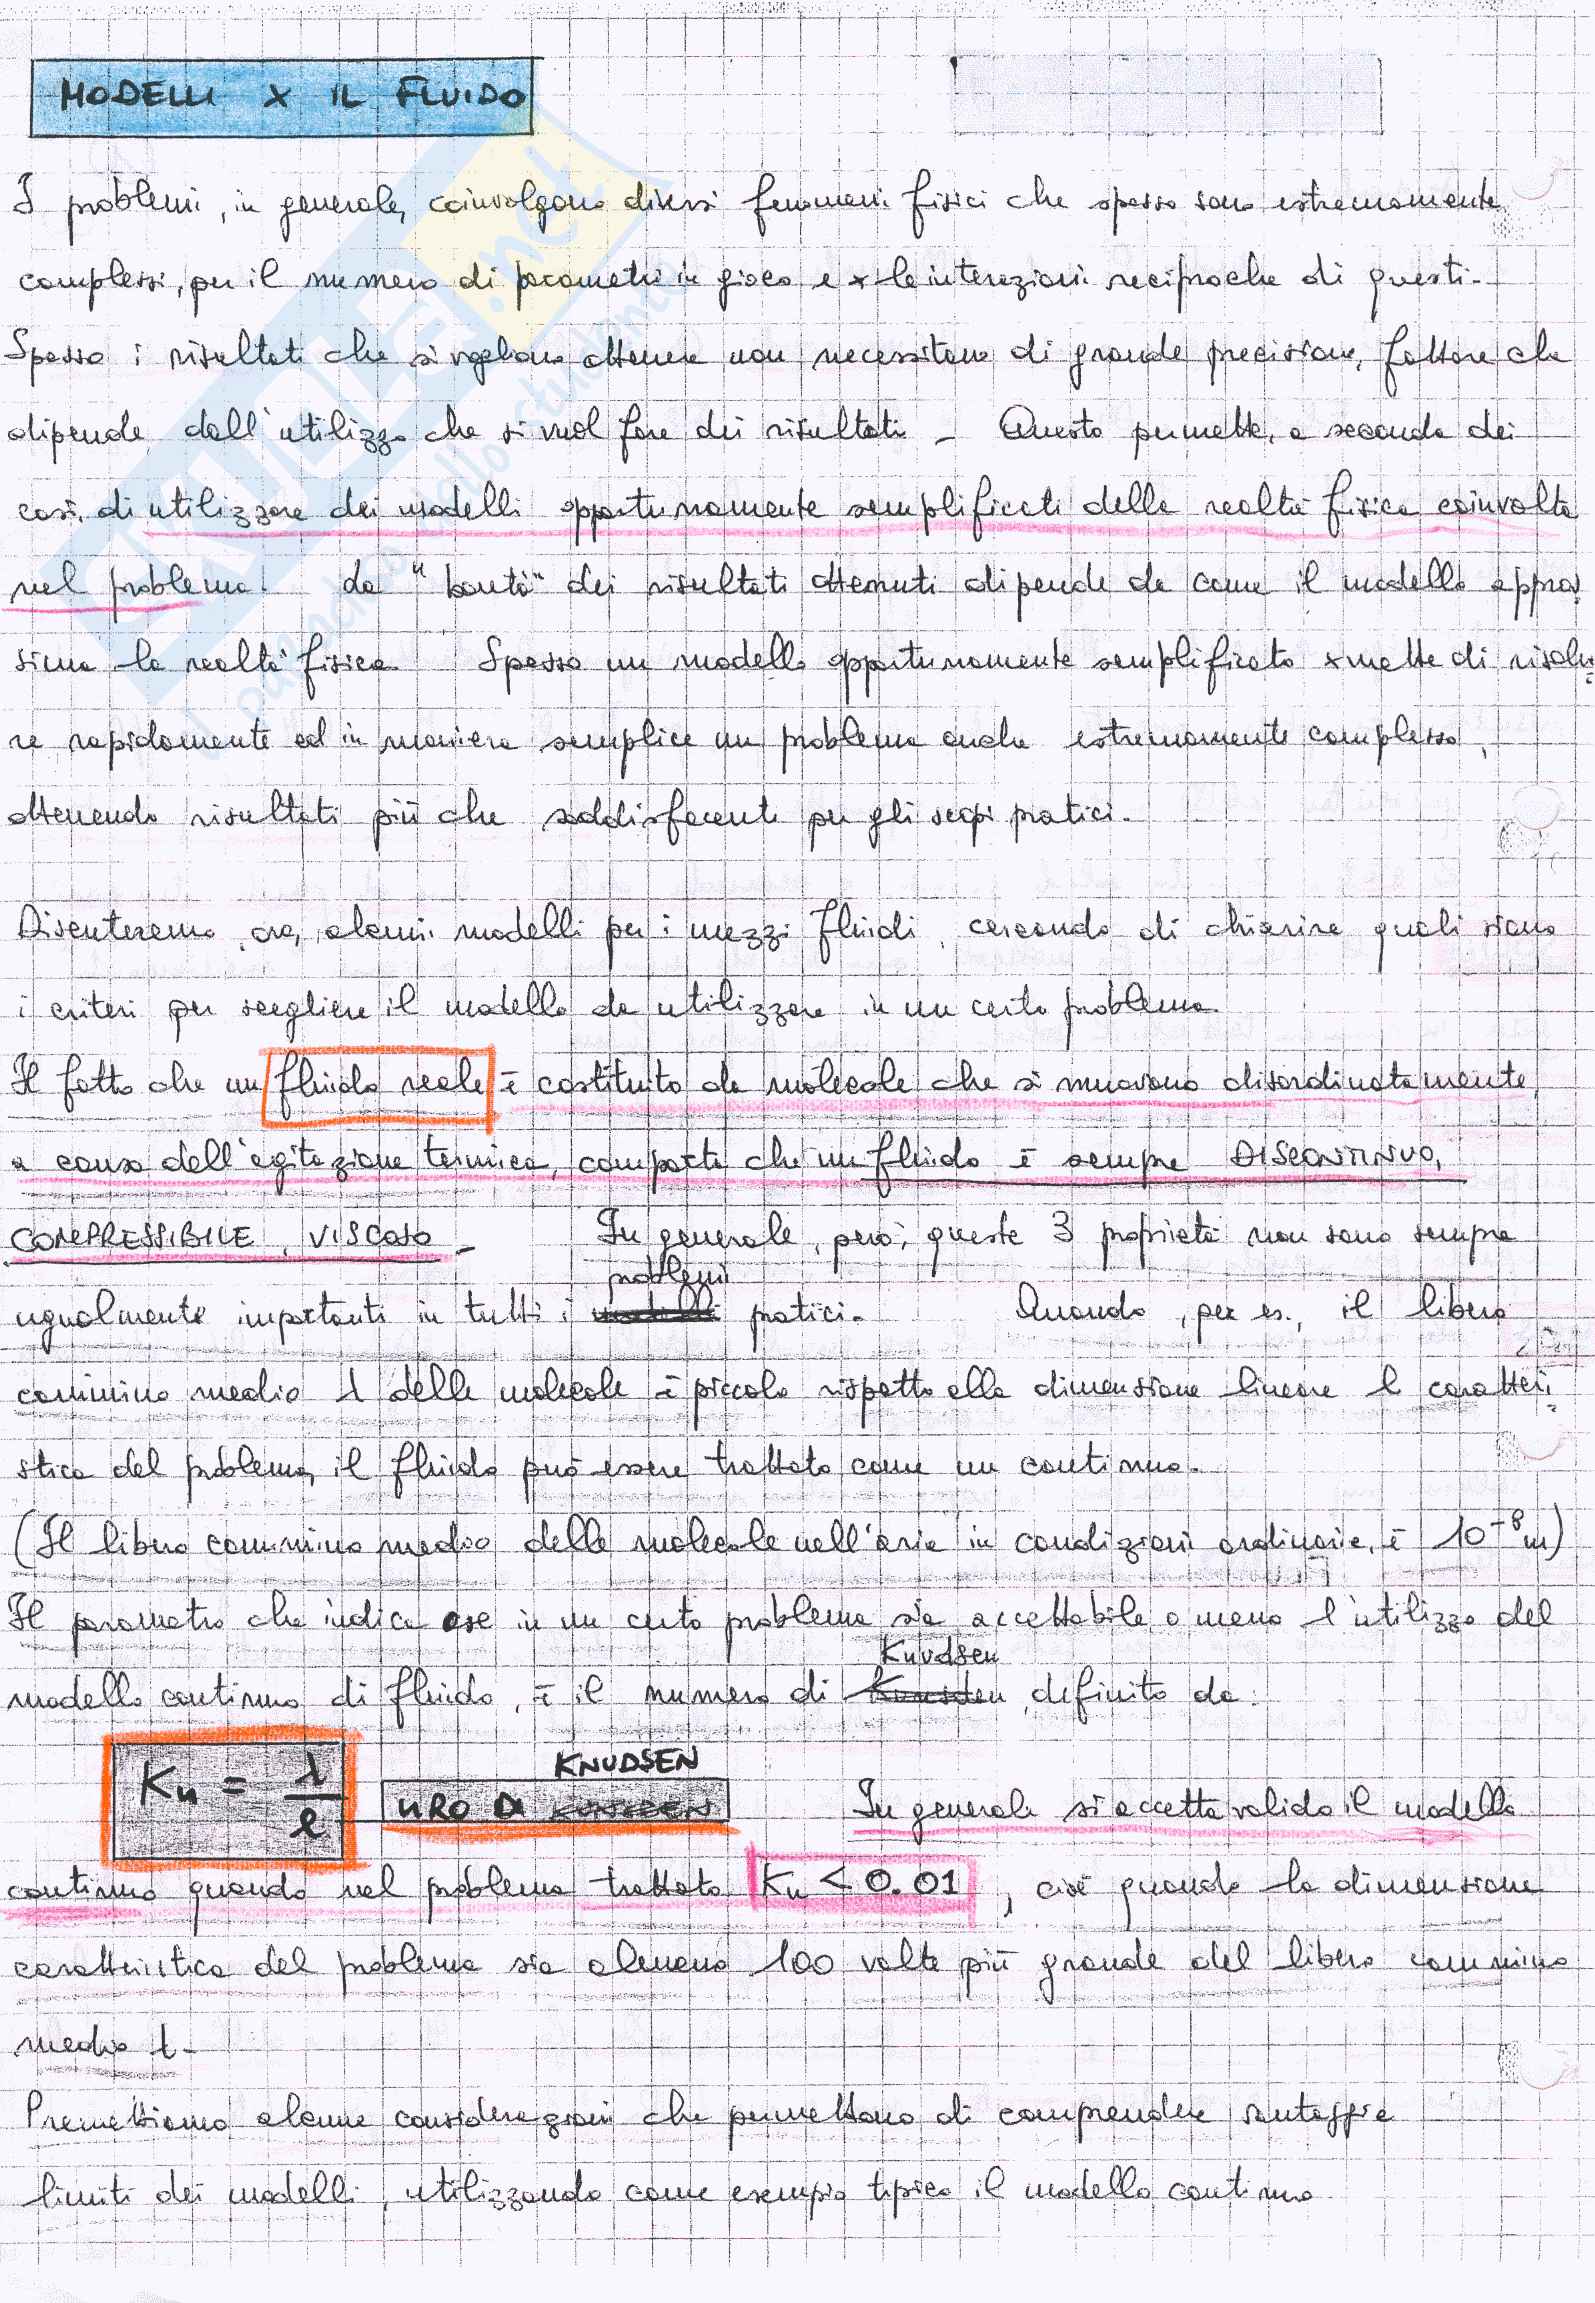 MODELLI X IL FLUIDO
I problemi, in generale, coinvolgono diversi fenomeni fisici che spesso sono estremamente
complessi, per il numero di parametri in gioco e x le interazioni reciproche di questi.
Spesso i risultati che si vogliono ottenere non necessitano di grande precisione, fattore che
dipende dall'utilizzo che si vuol fare dei risultati - Questo permette, a seconda dei
casi, di utilizzare dei modelli opportunamente semplificati della realtà fisica coinvolta
nel problema. La "bontà" dei risultati ottenuti dipende da come il modello appros
sima la realtà fisica. Spesso un modello opportunamente semplificato xmette di risolve
re rapidamente ed in maniera semplice un problema anche estremamente complesso,
ottenendo risultati più che soddisfacenti per gli scopi pratici.
Discuteremo, ora, alcuni modelli per i mezzi fluidi, cercando di chiarire quali siano
i criteri per scegliere il modello da utilizzare in un certo problema.
Il fatto che un fluido reale è costituito da molecole che si muovono disordinatamente
a causa dell'agitazione termica, comporta che un fluido è sempre DISCONTINUO,
COMPRESSIBILE, VISCOSO - In generale, però, queste 3 proprietà non sono sempre
problemi
ugualmente importanti in tutti i modelli pratici. Quando, per es., il libero
cammino medio λ delle molecole è piccolo rispetto alla dimensione lineare l caratteri
stica del problema, il fluido può essere trattato come un continuo.
(Il libero cammino medio delle molecole nell'aria in condizioni ordinarie, è 10⁻⁸ m)
Il parametro che indica se in un certo problema sia accettabile o meno l'utilizzo del
Knudsen
modello continuo di fluido, è il numero di Kunsden definito da:
Kn = λ/l
KNUDSEN
NRO DI KUNSDEN In generale si accetta valido il modello
continuo quando nel problema trattato Kn < 0.01, cioè quando la dimensione
caratteristica del problema sia almeno 100 volte più grande del libero cammino
medio λ-
Premettiamo alcune considerazioni che permettono di comprendere vantaggi e
limiti dei modelli, utilizzando come esempio tipico il modello continuo.